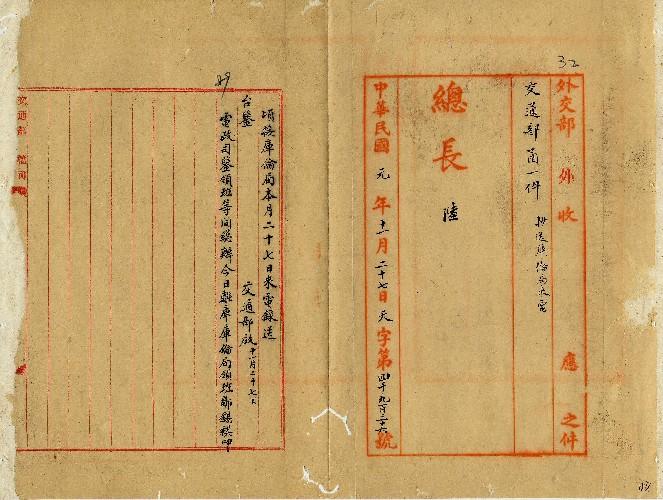 32
外交部 外收 應 之件
交通部函一件 抄送庫倫局來電
總長 陸
中華民國元年十一月二十七日 天字第四千九百二十六號
49
頃接庫倫局本月二十七日來電錄送
台鑒 交通部啟 十一月二十七日
電政司鑒領班等同 辦今日離庫庫倫局領班鄭 叩
交通部